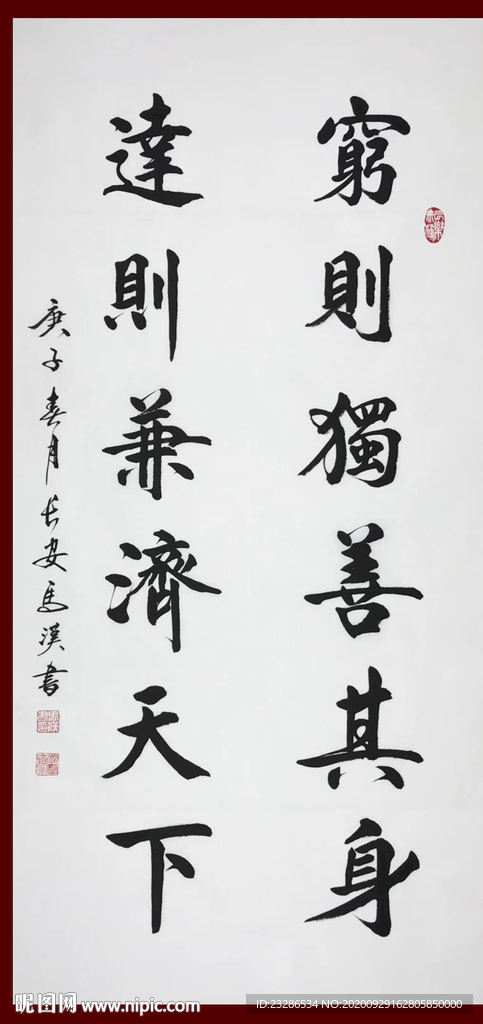 窮則獨善其身
達則兼濟天下
庚子春月長安馬漢書
昵图网 www.nipic.com
ID:23286534 NO:20200929162805850000